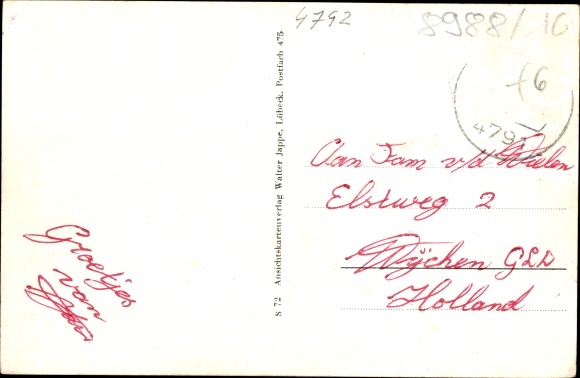 4792
8988/16
f6
479
Aan Fam v/d Wielen
Elstweg 2
Wijchen GLD
Holland
Groetjes
van
S 72 Ansichtskartenverlag Walter Jappe, Lübeck, Postfach 475